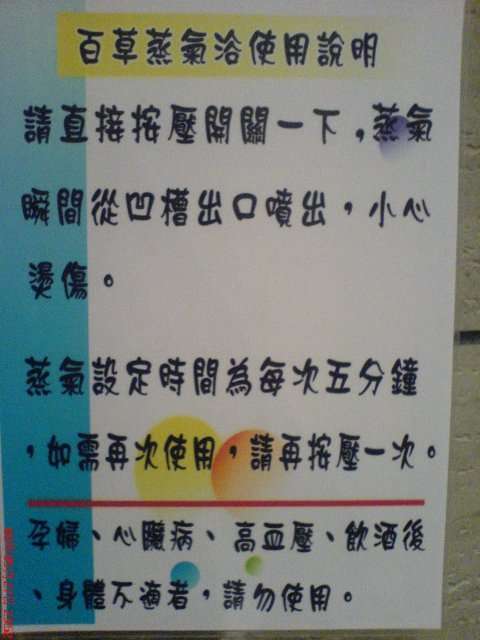 百草蒸氣浴使用說明
請直接按壓開關一下，蒸氣
瞬間從凹槽出口噴出，小心
燙傷。
蒸氣設定時間為每次五分鐘
，如需再次使用，請再按壓一次。
孕婦、心臟病、高血壓、飲酒後
、身體不適者，請勿使用。